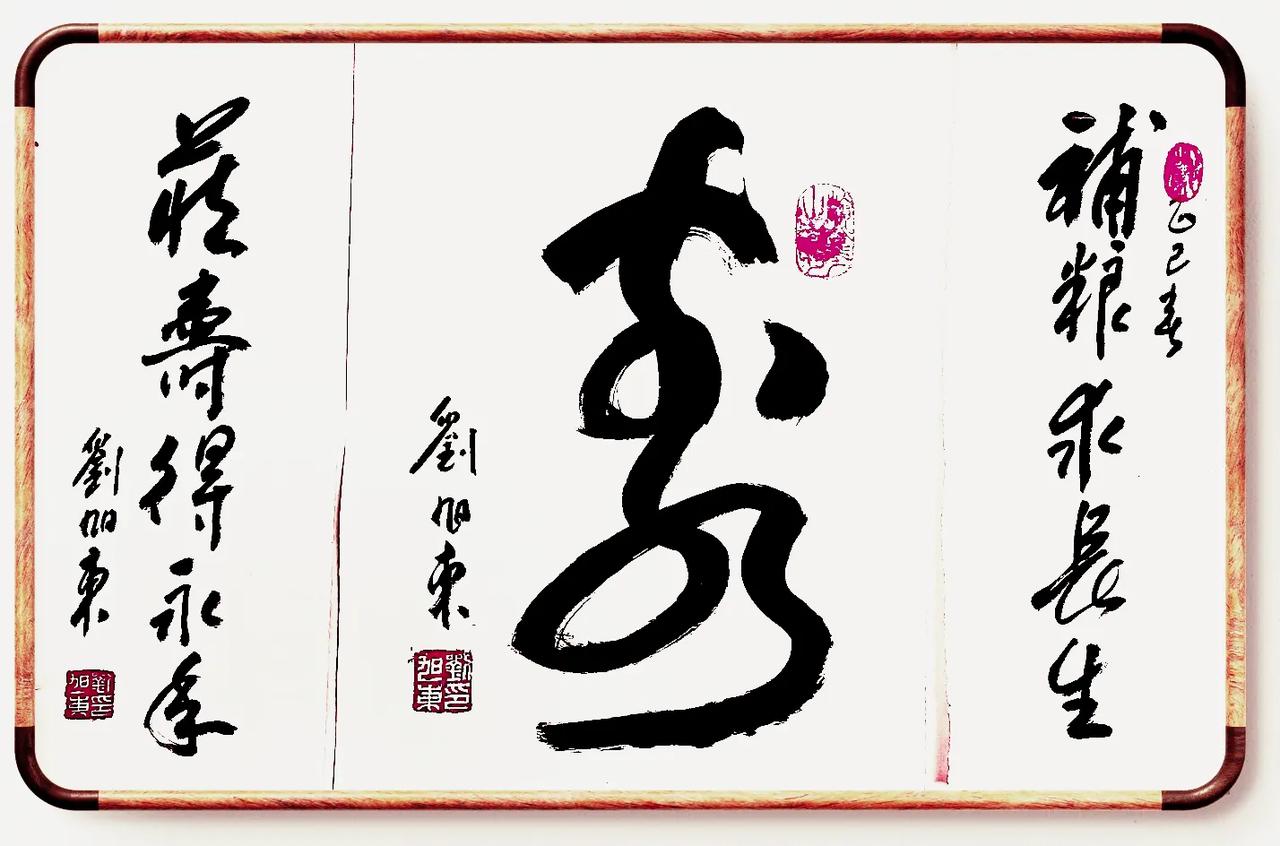 乙巳春
補粮求長生
壽
劉旭東
劉印旭東
壽得永年
劉旭東
劉印旭東